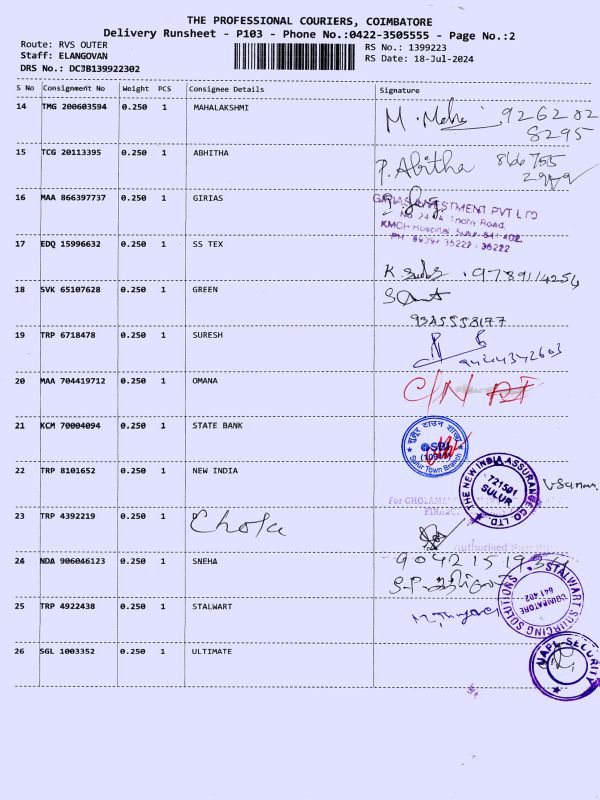 THE PROFESSIONAL COURIERS, COIMBATORE
Delivery Runsheet - P103 - Phone No.:0422-3505555 - Page No.:2
Route: RVS OUTER
Staff: ELANGOVAN
DRS No.: DCJB139922302
RS No.: 1399223
RS Date: 18-Jul-2024
S No Consignment No Weight PCS Consignee Details Signature
14 TMG 200603594 0.250 1 MAHALAKSHMI
M. 926202
8295
15 TCG 20113395 0.250 1 ABHITHA
P. Abitha 866755
16 MAA 866397737 0.250 1 GIRIAS
GIRIAS INVESTMENT PVT LTD
Trichy Road,
KMCH Hospital, Sulur 641 402
17 EDQ 15996632 0.250 1 SS TEX
K. 9789114254
18 SVK 65107628 0.250 1 GREEN
19 TRP 6718478 0.250 1 SURESH
9444342603
20 MAA 704419712 0.250 1 OMANA
C/N
21 KCM 70004094 0.250 1 STATE BANK
सुलूर टाउन शाखा
SBI
Sulur Town Branch
22 TRP 8101652 0.250 1 NEW INDIA
THE NEW INDIA ASSURANCE CO LTD.
721501
SULUR
23 TRP 4392219 0.250 1 Chola
For CHOLAMA
Authorised
24 NDA 906046123 0.250 1 SNEHA
25 TRP 4922438 0.250 1 STALWART
STALWART SOURCING SOLUTIONS
COIMBATORE
641 402
26 SGL 1003352 0.250 1 ULTIMATE
UAPL SECURITY